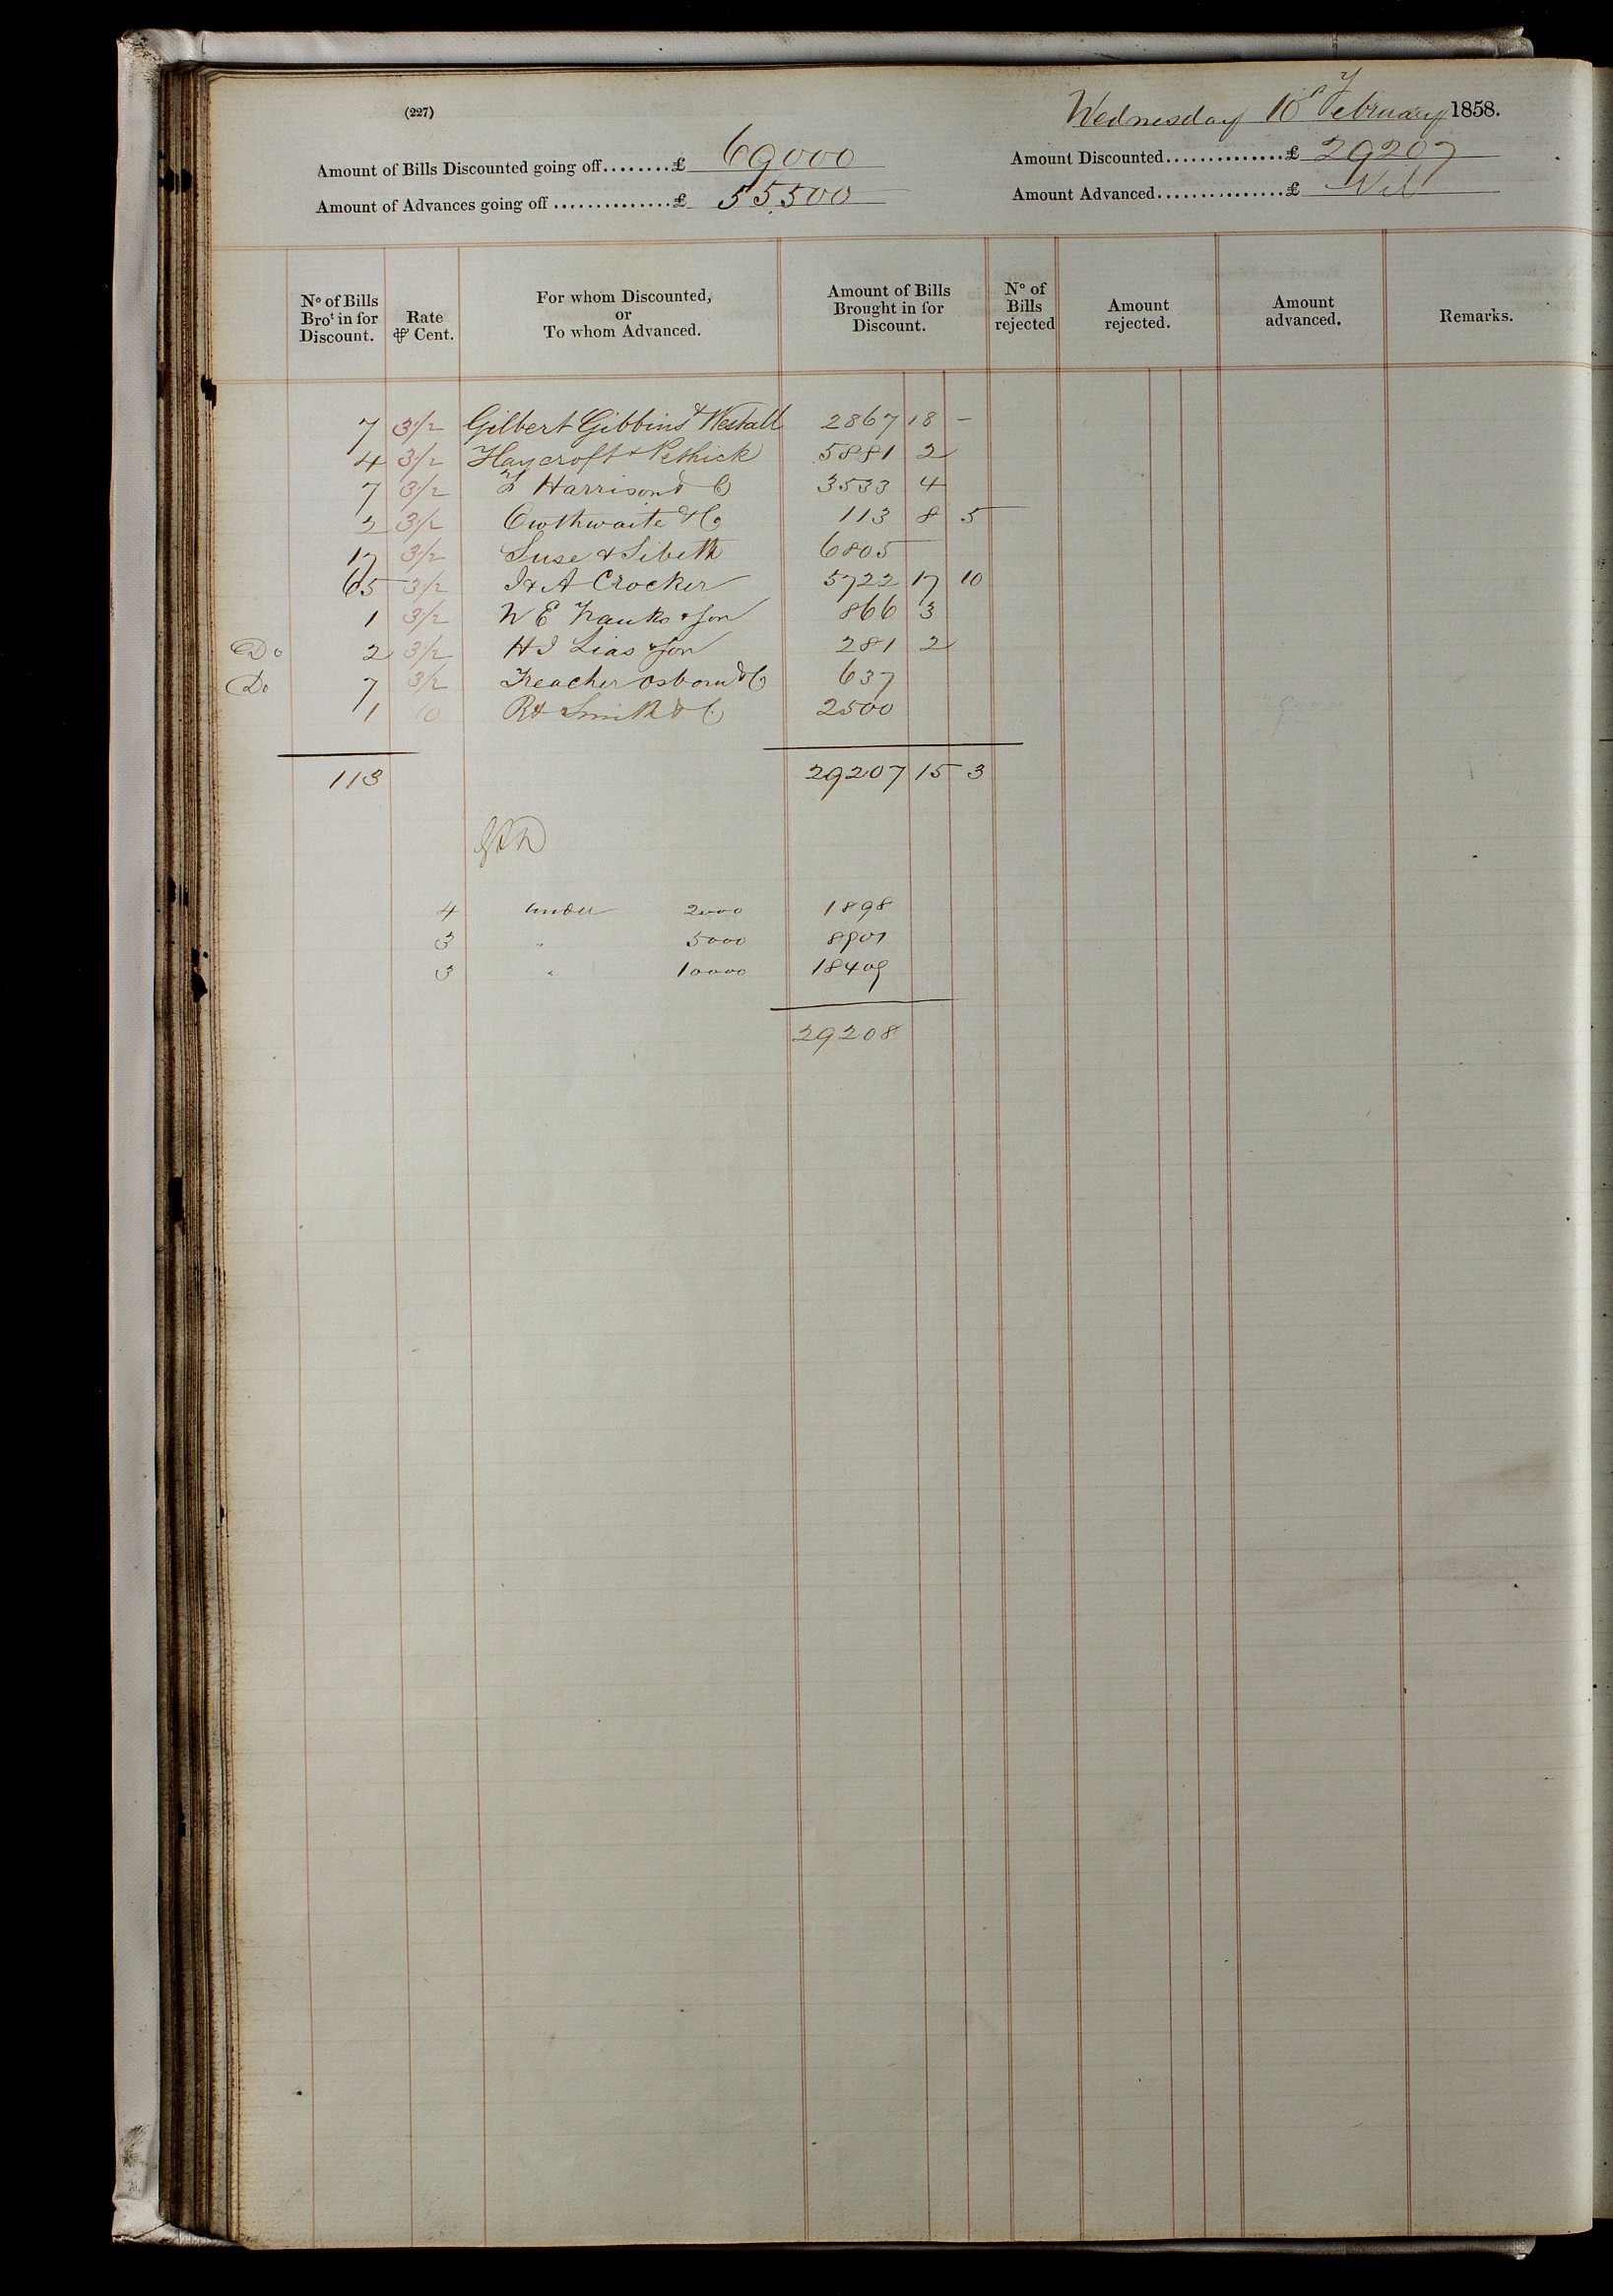 (227)
Wednesday 10 February 1858.
Amount of Bills Discounted going off........£ 69000
Amount Discounted..............£ 29207
Amount of Advances going off ..............£ 55,500
Amount Advanced................£ Nil
No of Bills Brot in for Discount.
Rate ⅌ Cent.
For whom Discounted, or To whom Advanced.
Amount of Bills Brought in for Discount.
No of Bills rejected
Amount rejected.
Amount advanced.
Remarks.
7 3½ Gilbert Gibbins & Westall 2867 18 -
4 3½ Haycroft & Pethick 5881 2
7 3½ Harrison & Co 3533 4
2 3½ Outhwaite & Co 113 8 5
17 3½ Suse & Sibeth 6805
65 3½ J & A Crocker 5722 17 10
1 3½ W E Franks & Son 866 3
Do 2 3½ H J Lias & Son 281 2
Do 7 3½ Treacher Osborn & Co 637
1 10 Smith & Co 2500
113 29207 15 3
4 under 2000 1898
3 " 5000 8901
3 " 10000 18409
29208